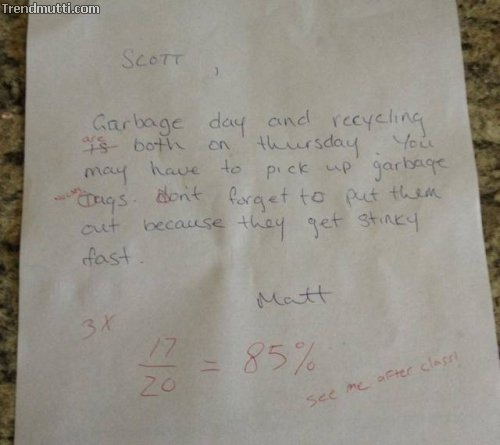 Trendmutti.com
SCOTT,
Garbage day and recycling
are
is both on thursday. You
may have to pick up garbage
tags. Don't forget to put them
out because they get stinky
fast.
Matt
3x
17
20 = 85%
see me after class!